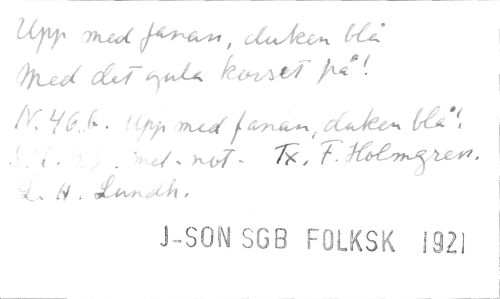 Upp med fanan, duken blå
Med det gula korset på!
N. 466. Upp med fanan, duken blå!
med. not. Tx. F. Holmgren.
L. H. Lundh.
J-SON SGB FOLKSK 1921